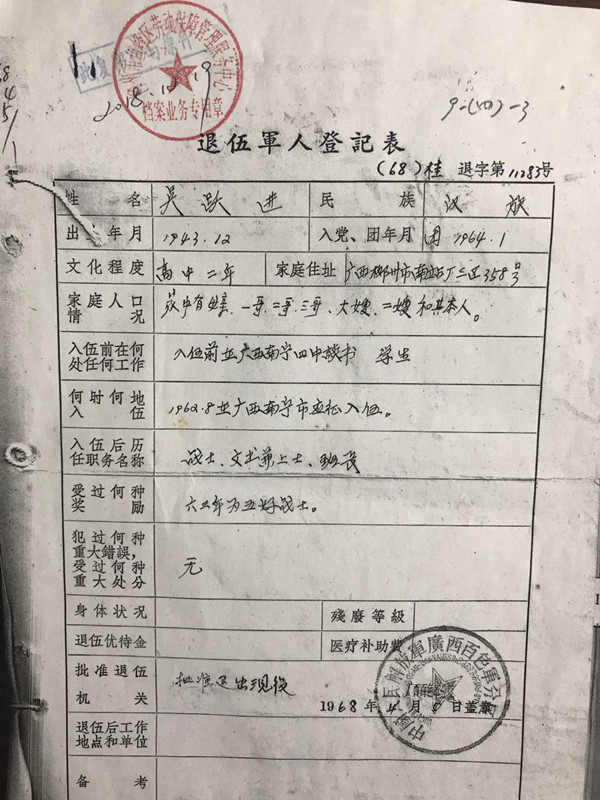 档案业务专用章
2018 10 19
9-(50)-3
退伍軍人登記表
(68)桂 退字第11283号
姓名 吴跃进 民族 汉族
出 年月 1943.12 入党、团年月 团 1964.1
文化程度 高中二年 家庭住址 广西柳州市南站厂三区358号
家庭人口
情况
家中有母亲、一哥、二哥、三哥、大嫂、二嫂和其本人。
入伍前在何
处任何工作
入伍前在广西南宁四中读书 学生
何时何地
入伍
1962.8在广西南宁市应征入伍。
入伍后历
任职务名称
战士、文书兼上士、班长
受过何种
奖励
六三年为五好战士。
犯过何种
重大錯誤,
受过何种
重大处分
无
身体状况 殘廢等級
退伍优待金 医疗补助費
批准退伍
机关
批准退出现役
1968年4月 日盖章
中國人民解放軍廣西百色軍分
退伍后工作
地点和单位
备考